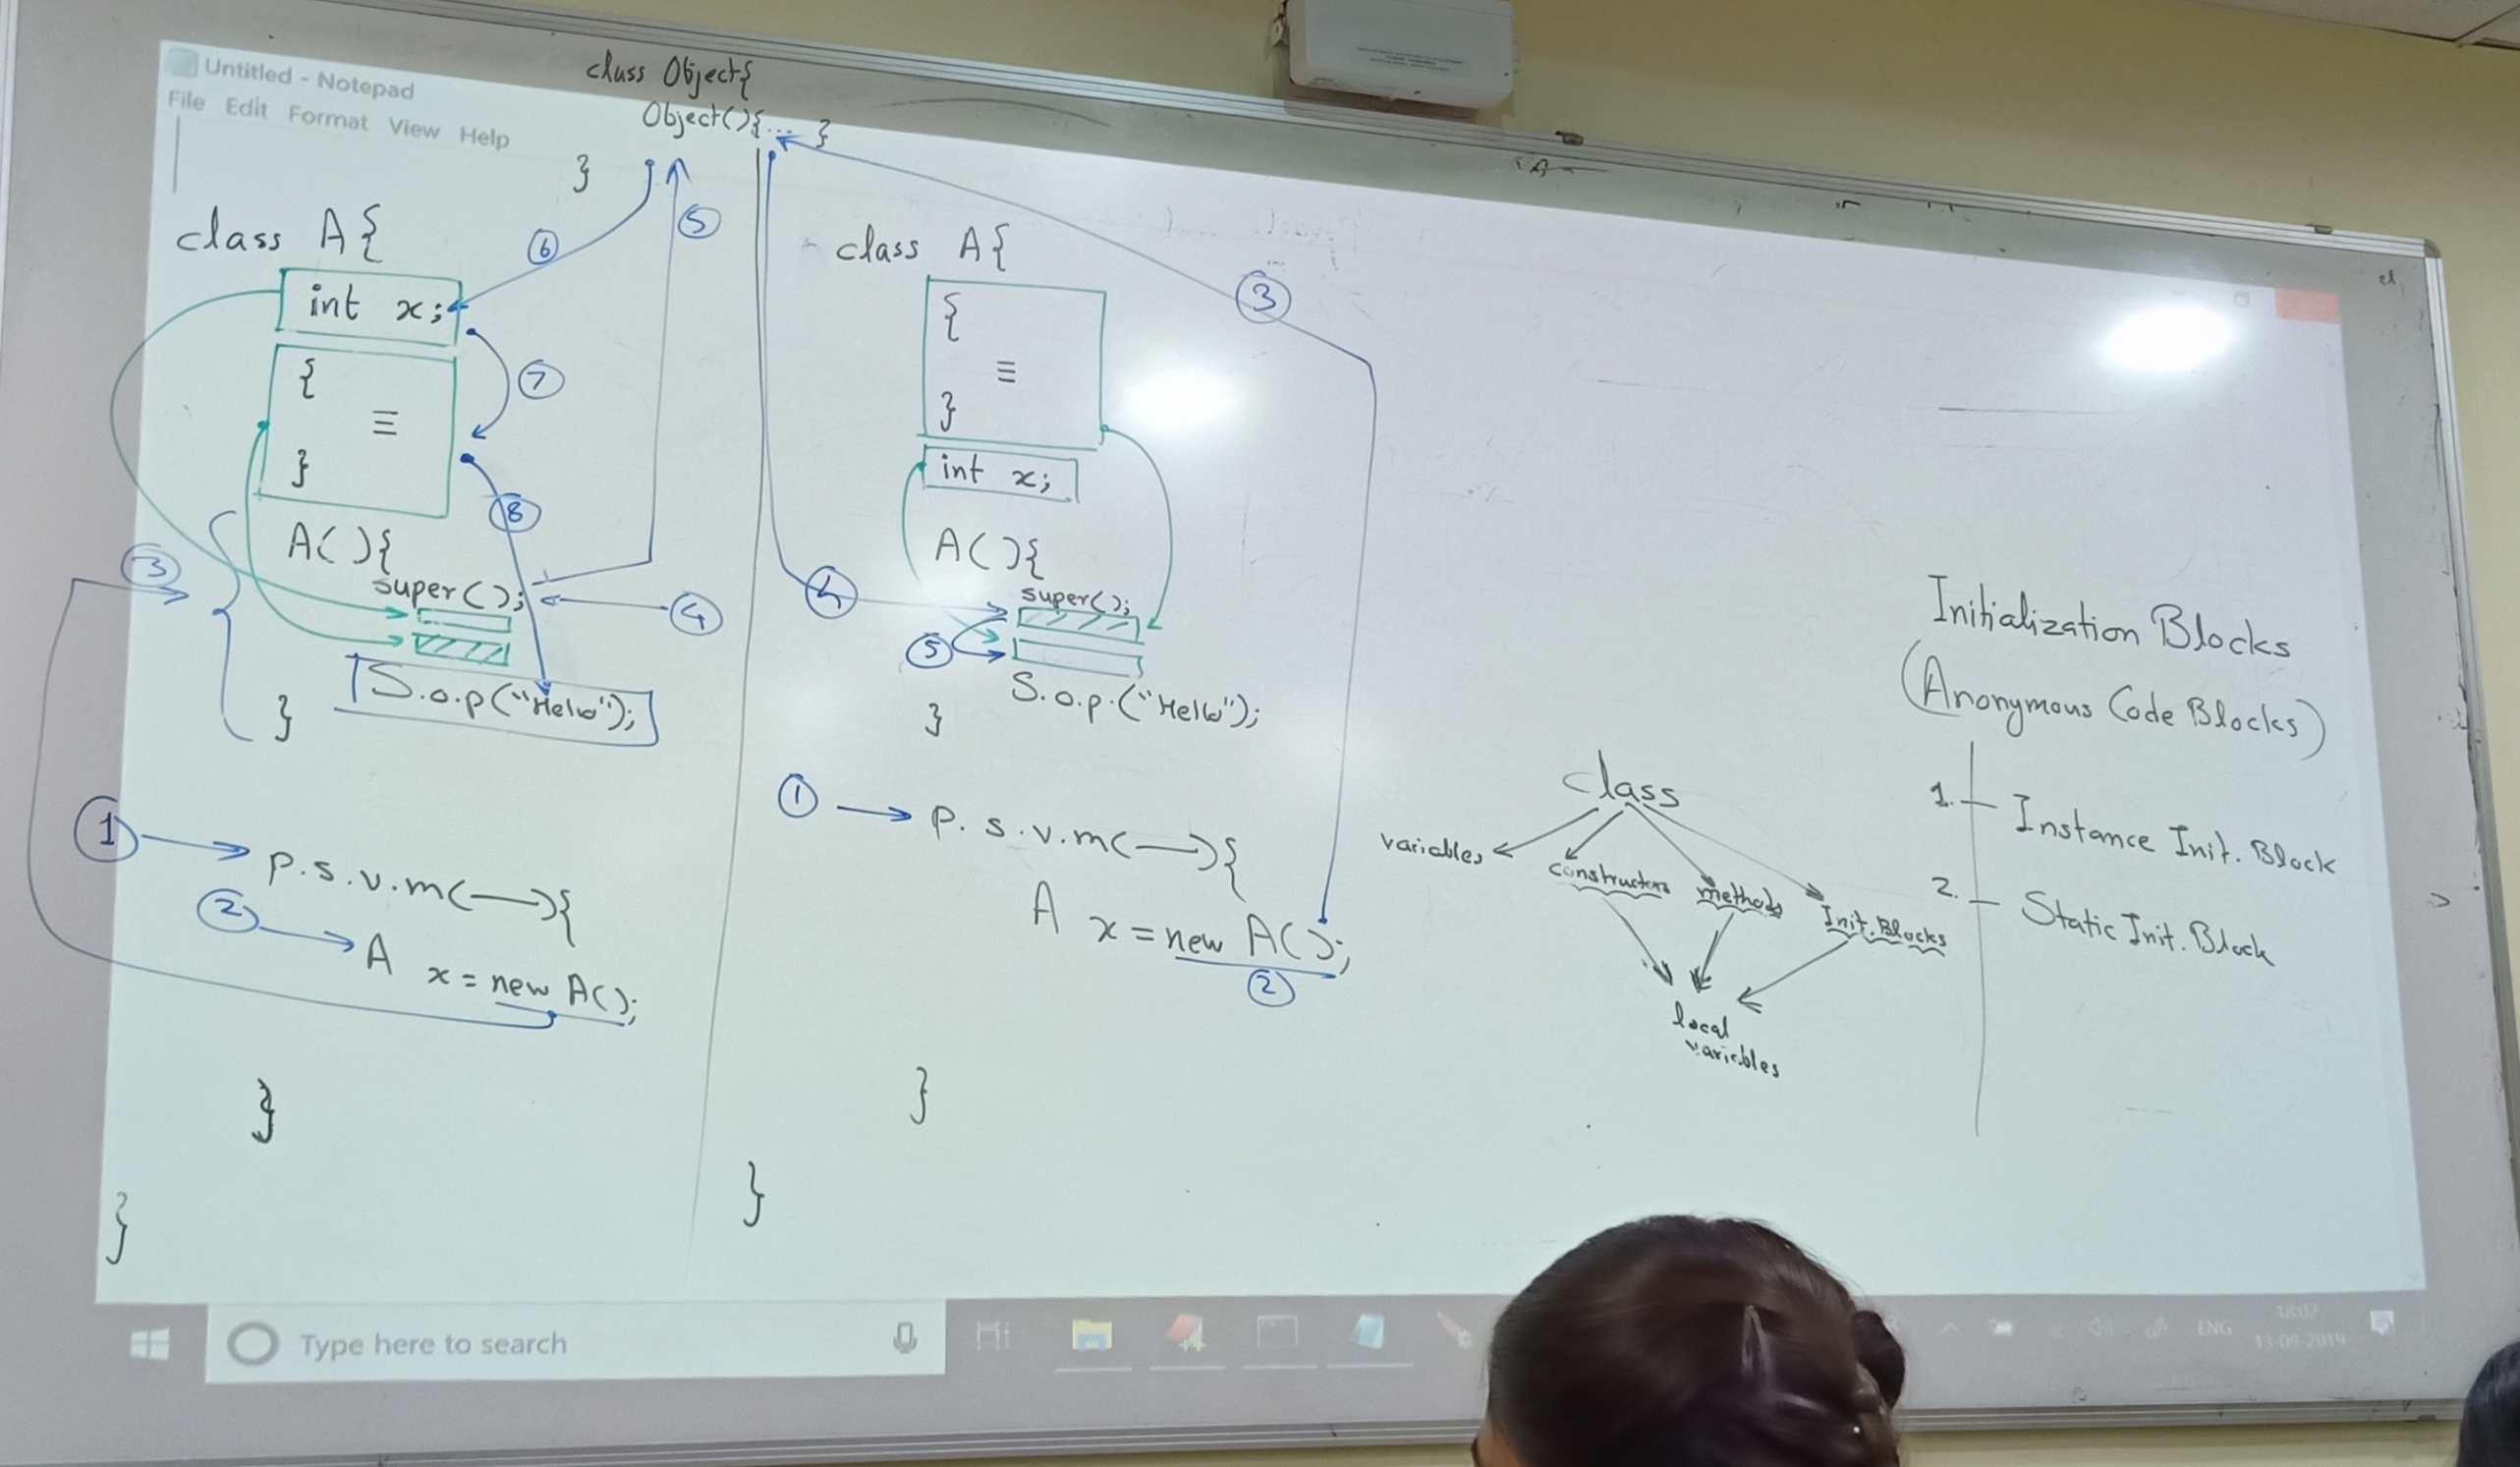 Untitled - Notepad
File Edit Format View Help
class Object{
Object(){... }
}
class A{
int x;
{
≡
}
A(){
super();
S.o.p("Hello");
}
p.s.v.m(—){
A x = new A();
}
}
1
2
3
4
5
6
7
8
class A{
{
≡
}
int x;
A(){
super();
S.o.p.("Hello");
}
p.s.v.m(—){
A x = new A();
}
}
1
2
3
4
5
class
variables
constructors
methods
Init. Blocks
local
variables
Initialization Blocks
(Anonymous Code Blocks)
1. Instance Init. Block
2. Static Init. Block
Type here to search
ENG
18:02
13-09-2019